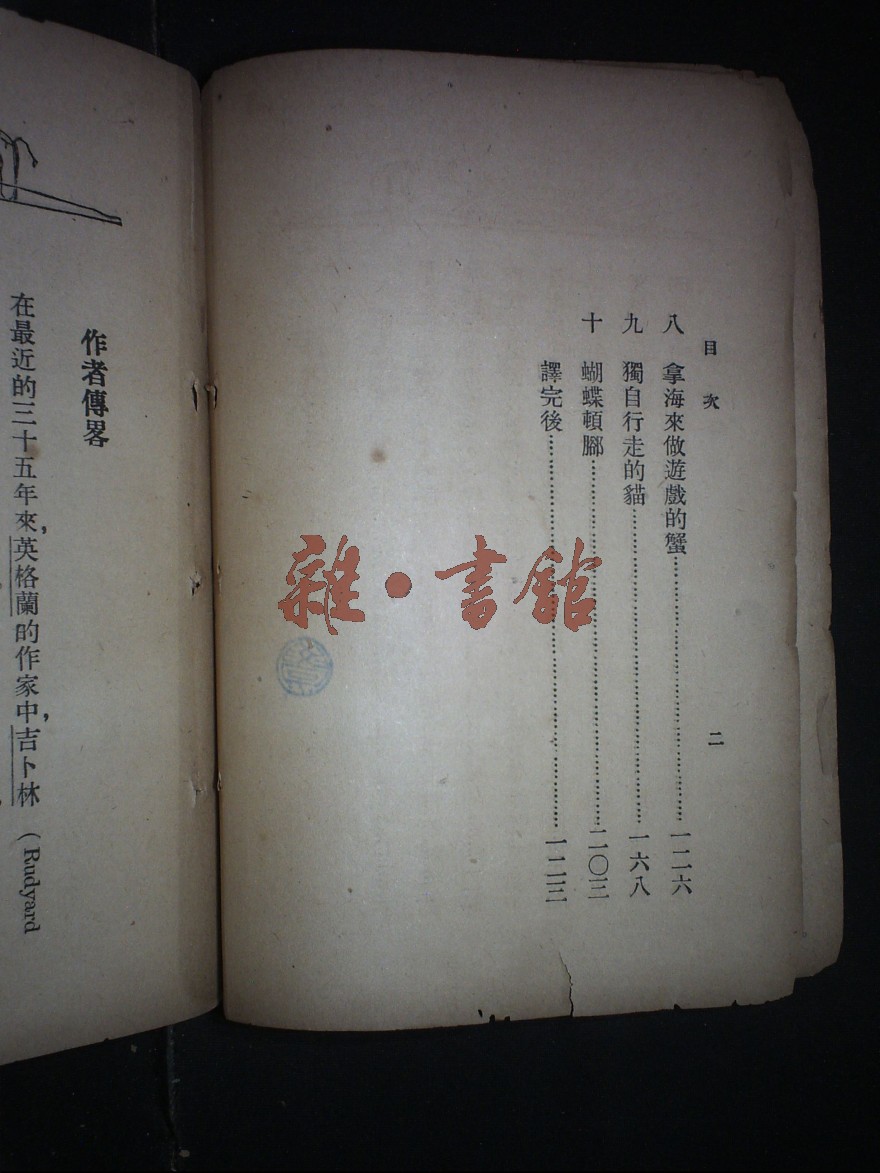 目次
二
八 拿海來做遊戲的蟹……一二六
九 獨自行走的貓……一六八
十 蝴蝶頓腳……二〇三
譯完後……一二三
作者傳畧
在最近的三十五年來，英格蘭的作家中，吉卜林（Rudyard
雜·書館